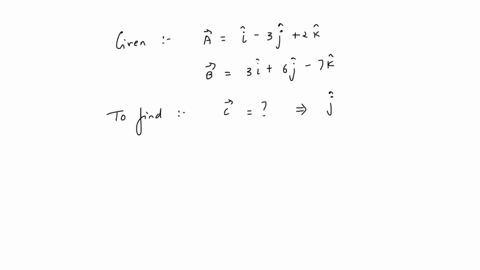 Given :- A⃗ = î - 3ĵ + 2k̂
B⃗ = 3î + 6ĵ - 7k̂
To find :- c⃗ = ? ⇒ ĵ